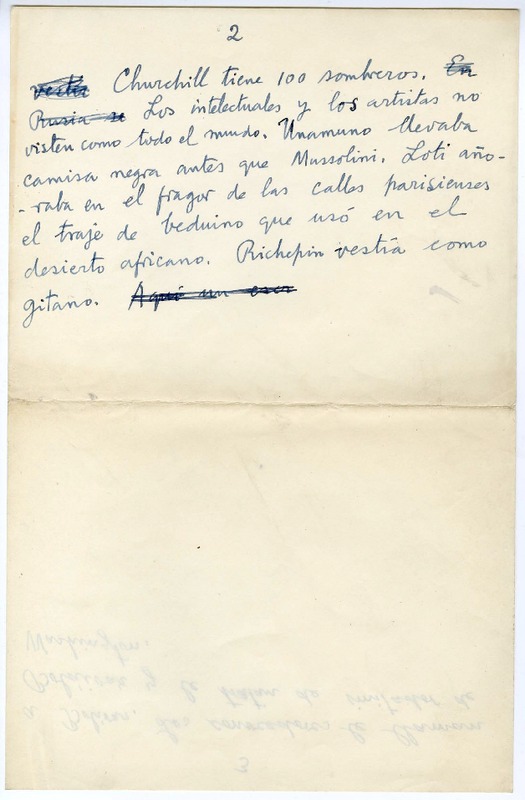 2
Churchill tiene 100 sombreros. En
Rusia se Los intelectuales y los artistas no
visten como todo el mundo. Unamuno llevaba
camisa negra antes que Mussolini. Loti año-
-raba en el fragor de las calles parisienses
el traje de beduino que usó en el
desierto africano. Richepin vestía como
gitano. Aquí un